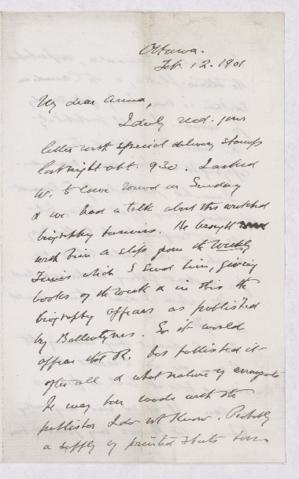 Ottawa.
Feb. 12. 1901
My dear Anna,
I duly recd. your
letter with special delivery stamps
last night abt. 9.30. I asked
W. to come round on Sunday
& we had a talk about this wretched
biography business. He brought
with him a slip from the Weekly
Times which I send him, giving
books of the week & in this the
biography appears as published
by Ballantynes. So it would
appear that R. has published it
after all & what nature of arrangmt
he may have made with the
publisher I do not know. Probably
a supply of printed sheets